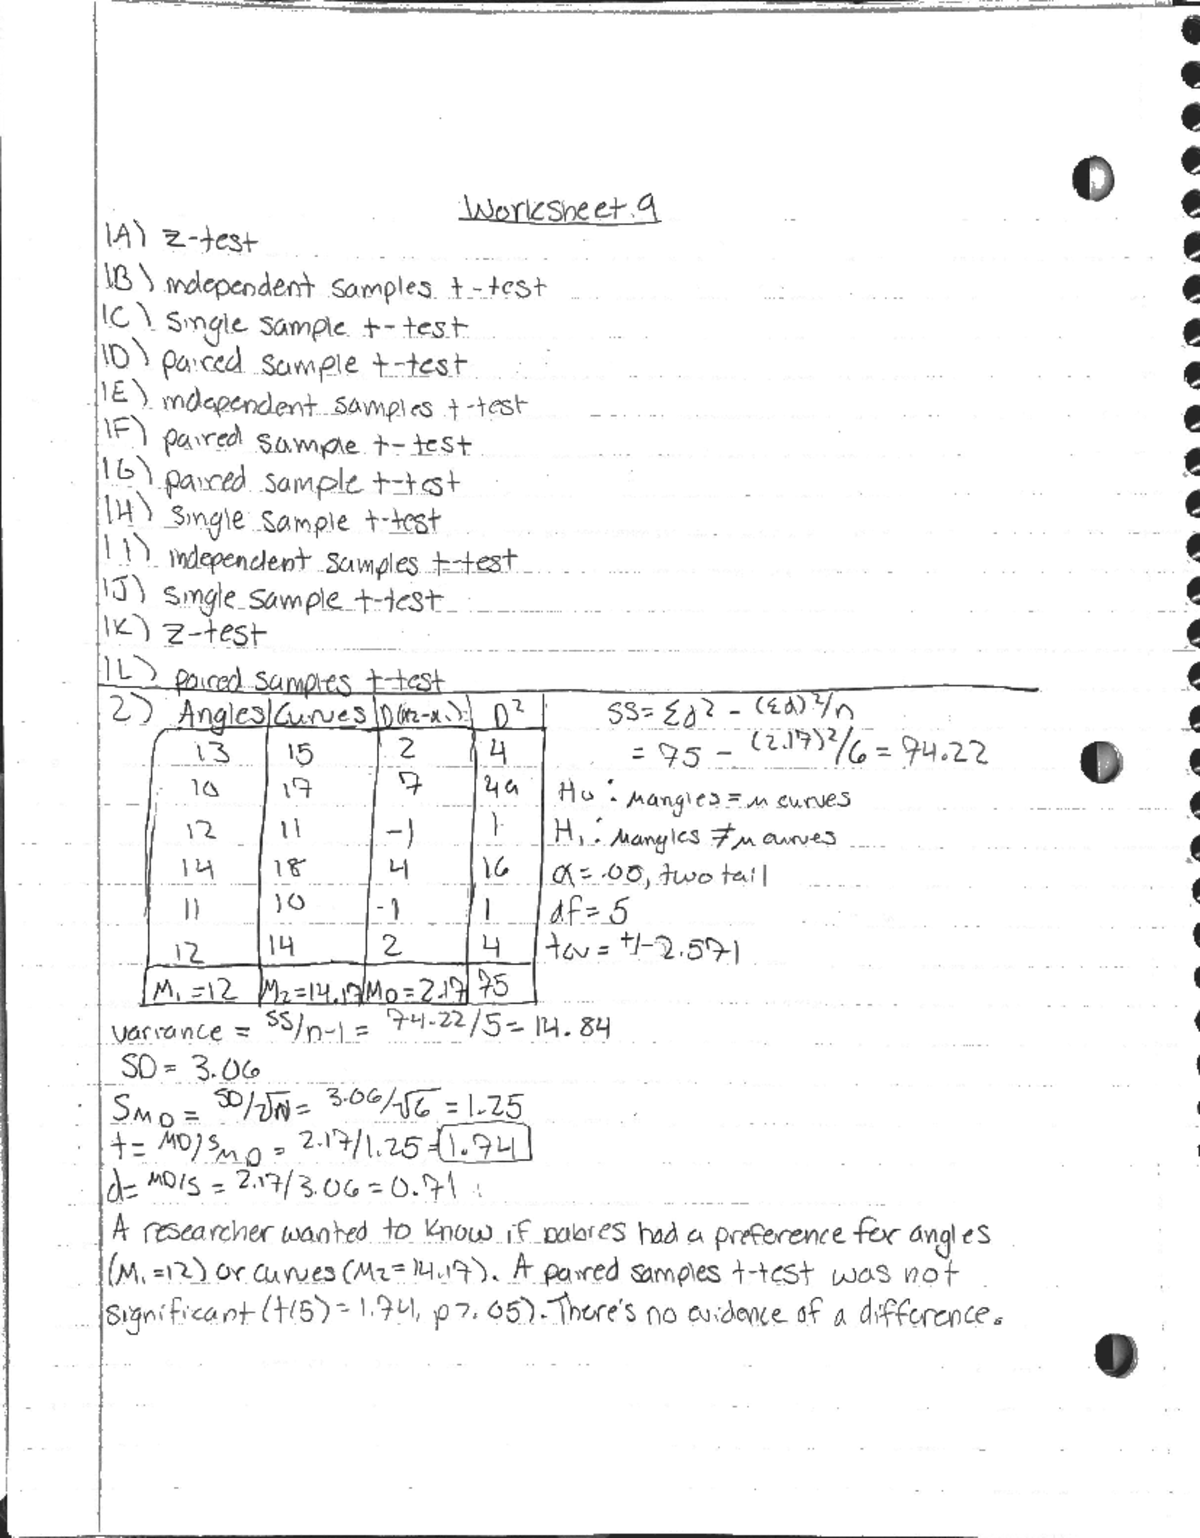 Worksheet 9
1A) z-test
1B) independent samples t-test
1C) single sample t-test
1D) paired sample t-test
1E) independent samples t-test
1F) paired sample t-test
1G) paired sample t-test
1H) single sample t-test
1I) independent samples t-test
1J) single sample t-test
1K) z-test
1L) paired samples t-test
2) Angles Curves D(x2-x1) D²
13 15 2 4
10 17 7 49
12 11 -1 1
14 18 4 16
11 10 -1 1
12 14 2 4
M₁=12 M₂=14.17 MD=2.17 75
SS= Σd² - (Σd)²/n
= 75 - (2.17)²/6 = 74.22
H₀: μangles = μ curves
H₁: μangles ≠ μ curves
α = .05, two tail
df = 5
tcv = +/-2.571
variance = SS/n-1 = 74.22/5 = 14.84
SD = 3.06
SMD = SD/√N = 3.06/√6 = 1.25
t = MD/SMD = 2.17/1.25 = 1.74
d = MD/S = 2.17/3.06 = 0.71
A researcher wanted to know if babies had a preference for angles
(M₁=12) or curves (M₂=14.17). A paired samples t-test was not
significant (t(5)=1.74, p>.05). There's no evidence of a difference.